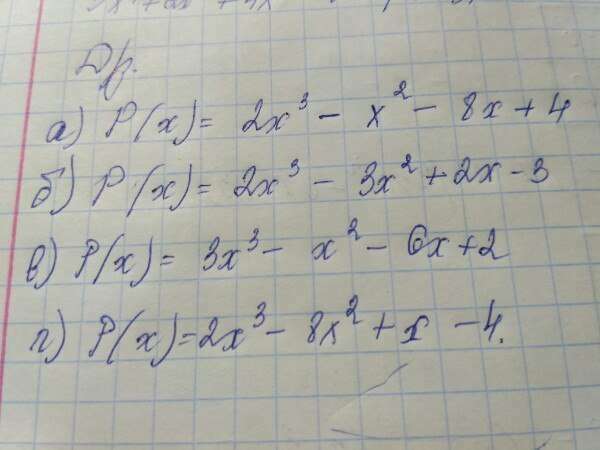 Др.
а) P(x) = 2x³ - x² - 8x + 4
б) P(x) = 2x³ - 3x² + 2x - 3
в) P(x) = 3x³ - x² - 6x + 2
г) P(x) = 2x³ - 8x² + x - 4.